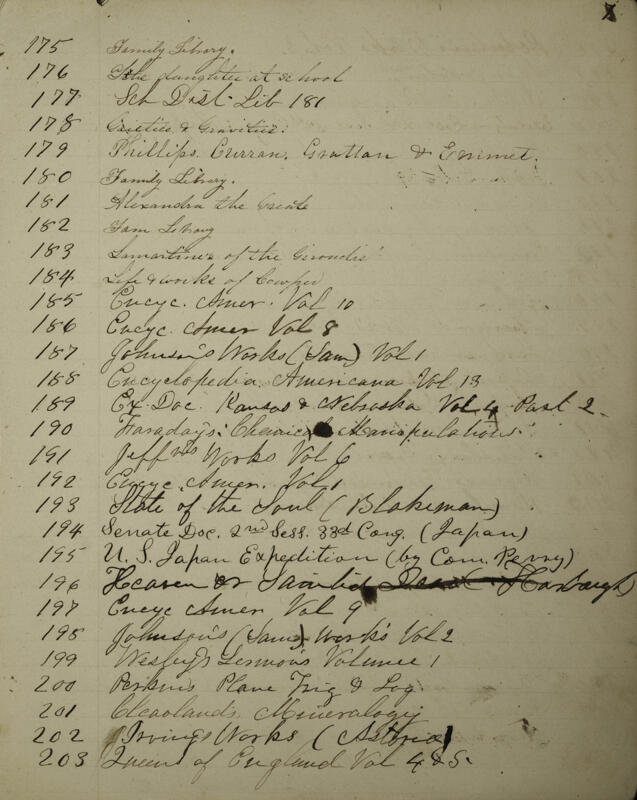 X
175 Family Library.
176 The daughter at school
177 Sch Dist Lib 181
178 Gaieties & Gravities.
179 Phillips. Curran. Grattan & Emmet.
180 Family Library.
181 Alexandra the Greate
182 Fam Library
183 Lamartine's of the Girondis
184 Life & works of Cowper
185 Encyc. Amer. Vol 10
186 Encyc. Amer Vol 8
187 Johnson's Works (Sam) Vol 1
188 Encyclopedia Americana Vol 13
189 Ex. Doc. Kansas & Nebraska Vol 4 Part 2.
190 Faraday's Chemical Manipulations
191 Jeffns Works Vol 6
192 Encyc. Amer. Vol 1
193 State of the Soul (Blakeman)
194 Senate Doc. 2nd Sess. 33d Cong. (Japan)
195 U. S. Japan Expedition (by Com. Perry)
196 Heaven or Sainted Dead Harbaugh
197 Encyc Amer Vol 9
198 Johnson's (Sam) Works Vol 2
199 Wesley's Sermons Volume 1
200 Perkins Plane Trig & Log.
201 Cleavlands Mineralogy
202 Irvings Works (Astoria)
203 Queens of England Vol 4 & 5.